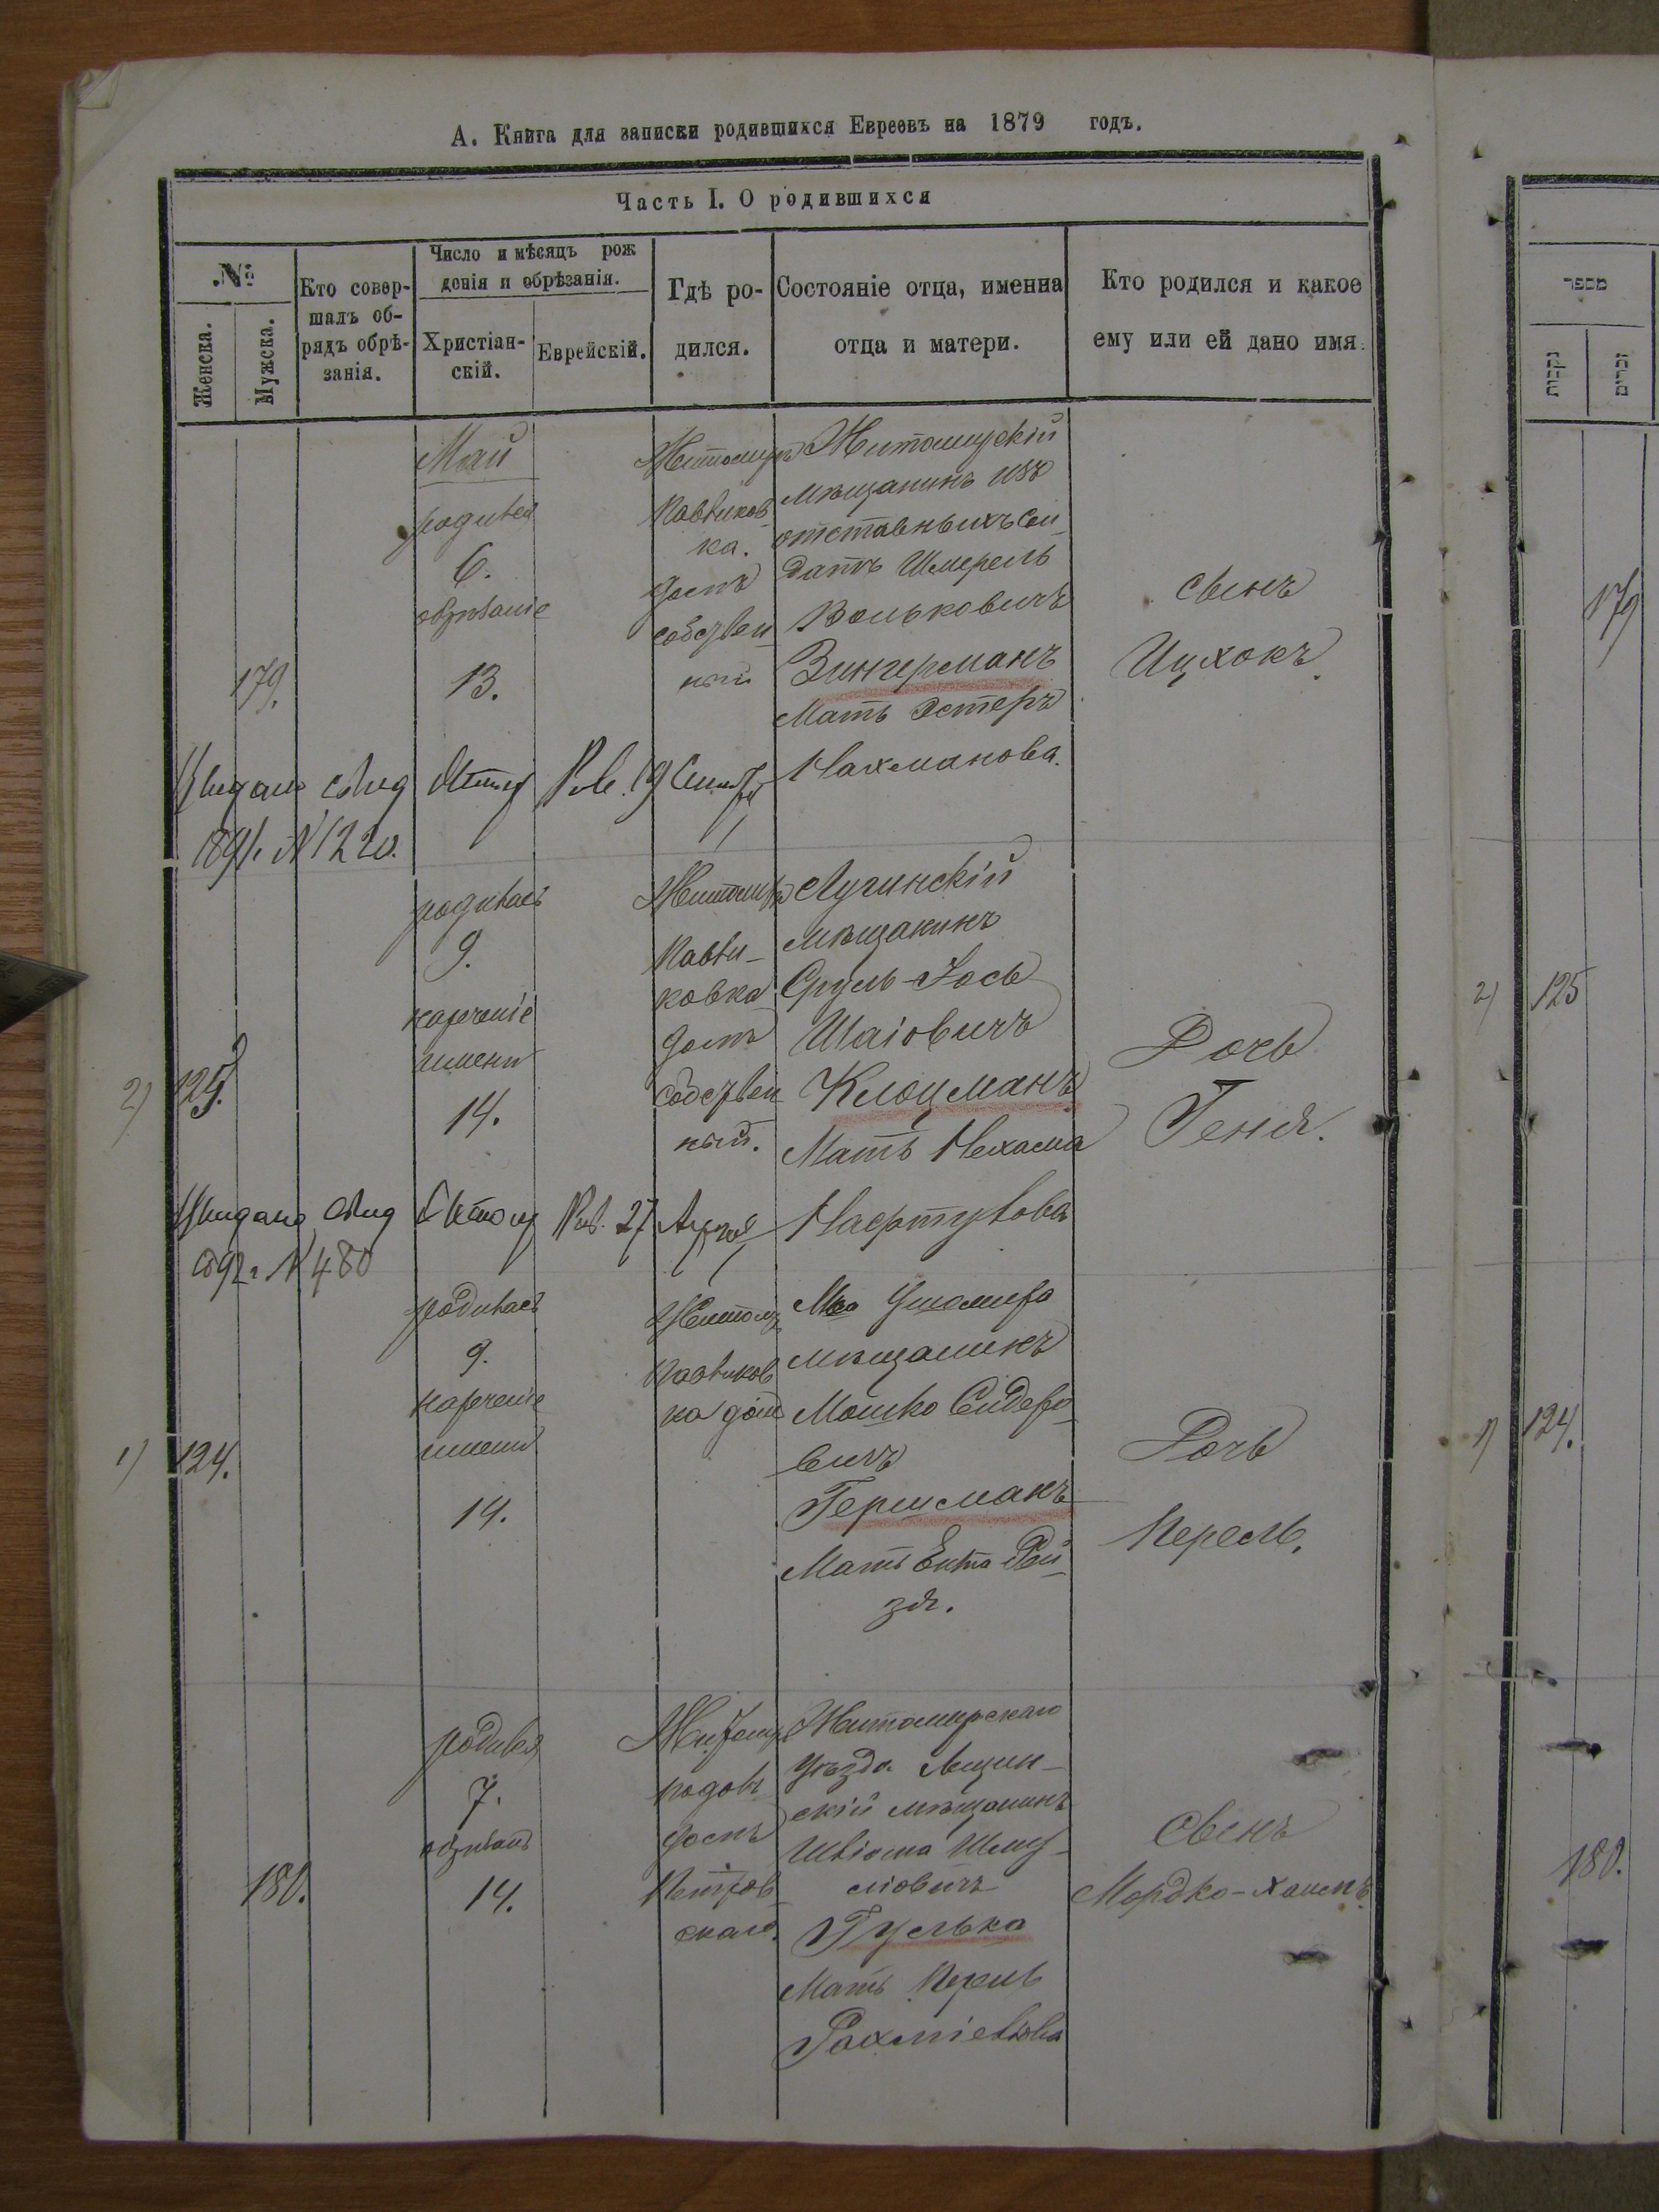 А. Книга для записки родившихся Евреевъ на 1879 годъ.
Часть I. О родившихся
№
Женска.
Мужска.
Кто совер-
шалъ об-
рядъ обрѣ-
занія.
Число и мѣсяцъ рож
денія и обрѣзанія.
Христіан-
скій.
Еврейскій.
Гдѣ ро-
дился.
Состояніе отца, именна
отца и матери.
Кто родился и какое
ему или ей дано имя.
179.
Май
родился
6.
обрѣзаніе
13.
Житомиръ
ка.
домъ
собствен
ный
Житомирскій
мѣщанинъ изъ
отставныхъ сол
датъ Шмерель
Вольковичъ
Зингерманъ
Мать Эстеръ
Нахманова.
сынъ
Ицхокъ.
1891г. N 1220.
2) 125.
родилась
9.
нареченіе
имени
14.
Житомиръ
ковка
домъ
собствен
ный.
Лугинскій
мѣщанинъ
Сруль-Іось
Шаіовичъ
Клоцманъ
Мать Нехама
Нафтулова
Дочь
Геня.
892г N 480
1) 124.
родилась
9.
нареченіе
имени
14.
Житомиръ
ка домъ
Ушомира
мѣщанинъ
Мошко Сидеро
вичъ
Гершманъ
Мать Ента Рей
зя.
Дочь
Перель.
180.
родился
7.
14.
Житомиръ
домъ
Петров
скаго.
Житомирскаго
Уѣзда Лещин-
скій мѣщанинъ
Шліома Шму-
ліовичъ
Гулька
Мать Перль
Рахміелова
Сынъ
Мордко-Хаимъ.
מספר
נקבות
זכרים
179
2) 125
1) 124.
180.